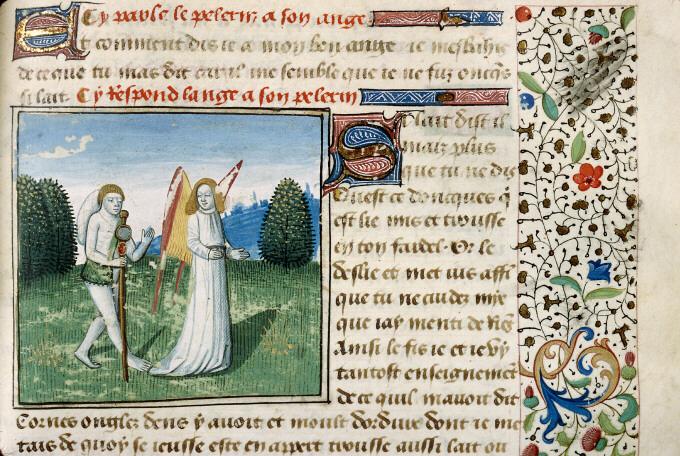 Cy parle le pelerin a son ange
Et comment dis ie a mon bon ange ie mesbahie
de ce que tu mas dit car il me semble que ie ne fuz oncqs
si lait. Cy Respond lange a son pelerin
Si lait dist il
maiz plus
que tu ne dis
Quest ce doncques q
est lie mis et trousse
en ton fardel. Or le
deslie et met ius affi
que tu ne cuidez mie
que iay menti de Riẽs
Ainsi le fis ie et ie vy
tantost enseignement
de ce quil mavoit dit
Cornes ongles dens y avoit et moult dordure dont ie me
tais de quoy se ieusse este en appert trousse aussi lait ou